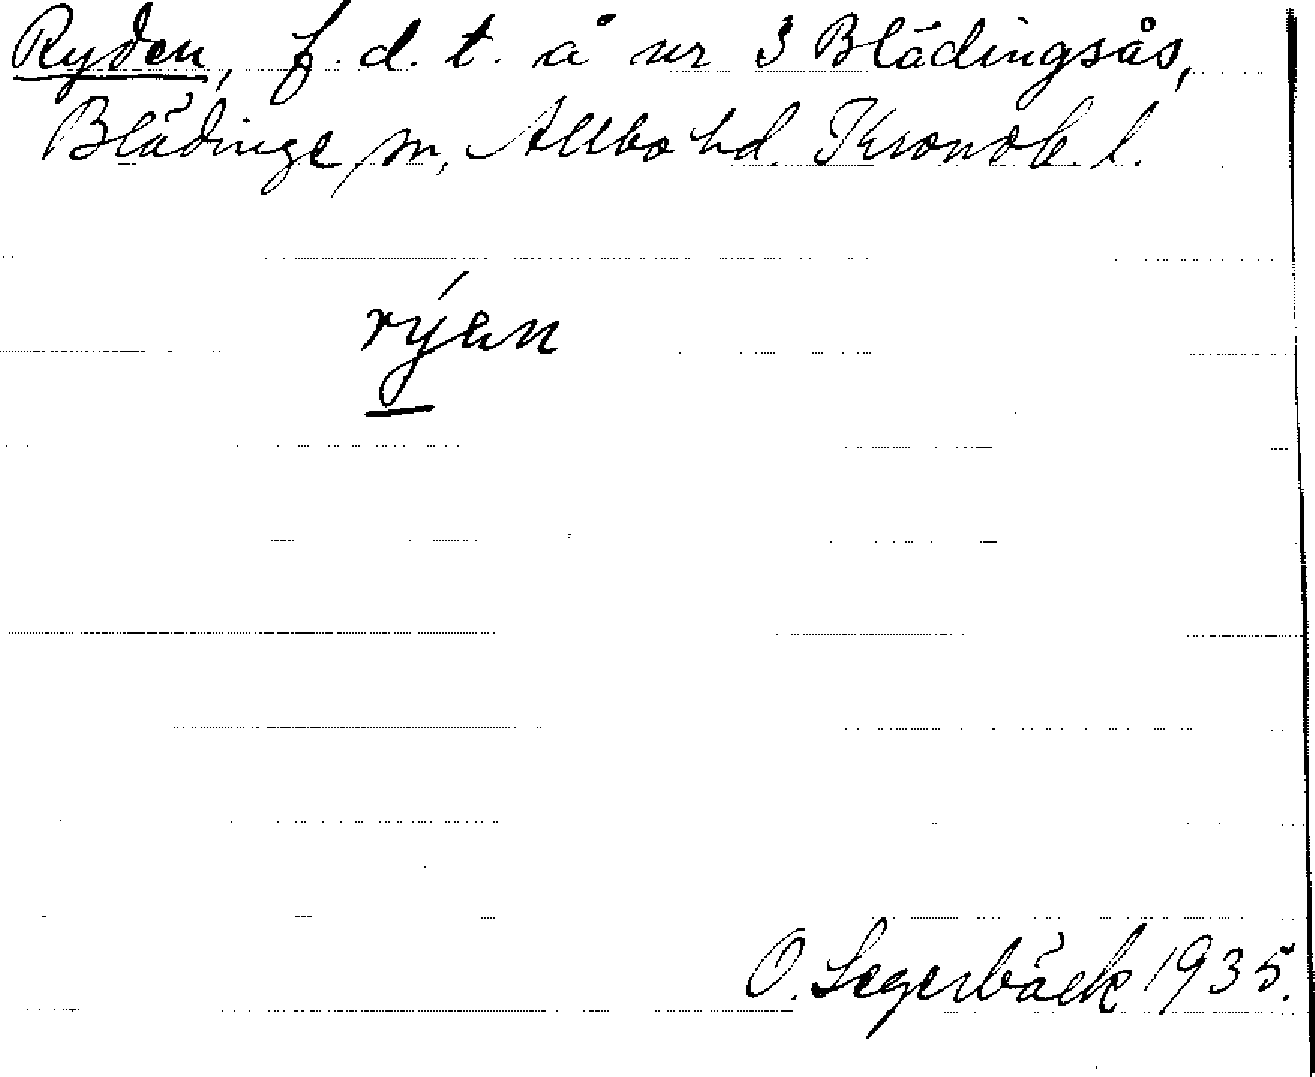 Ryden, f. d. t. å nr 3 Blädingsås,
Blädinge sn, Allbo hd. Kronob. l.
rýan
O. Segerbäck 1935.